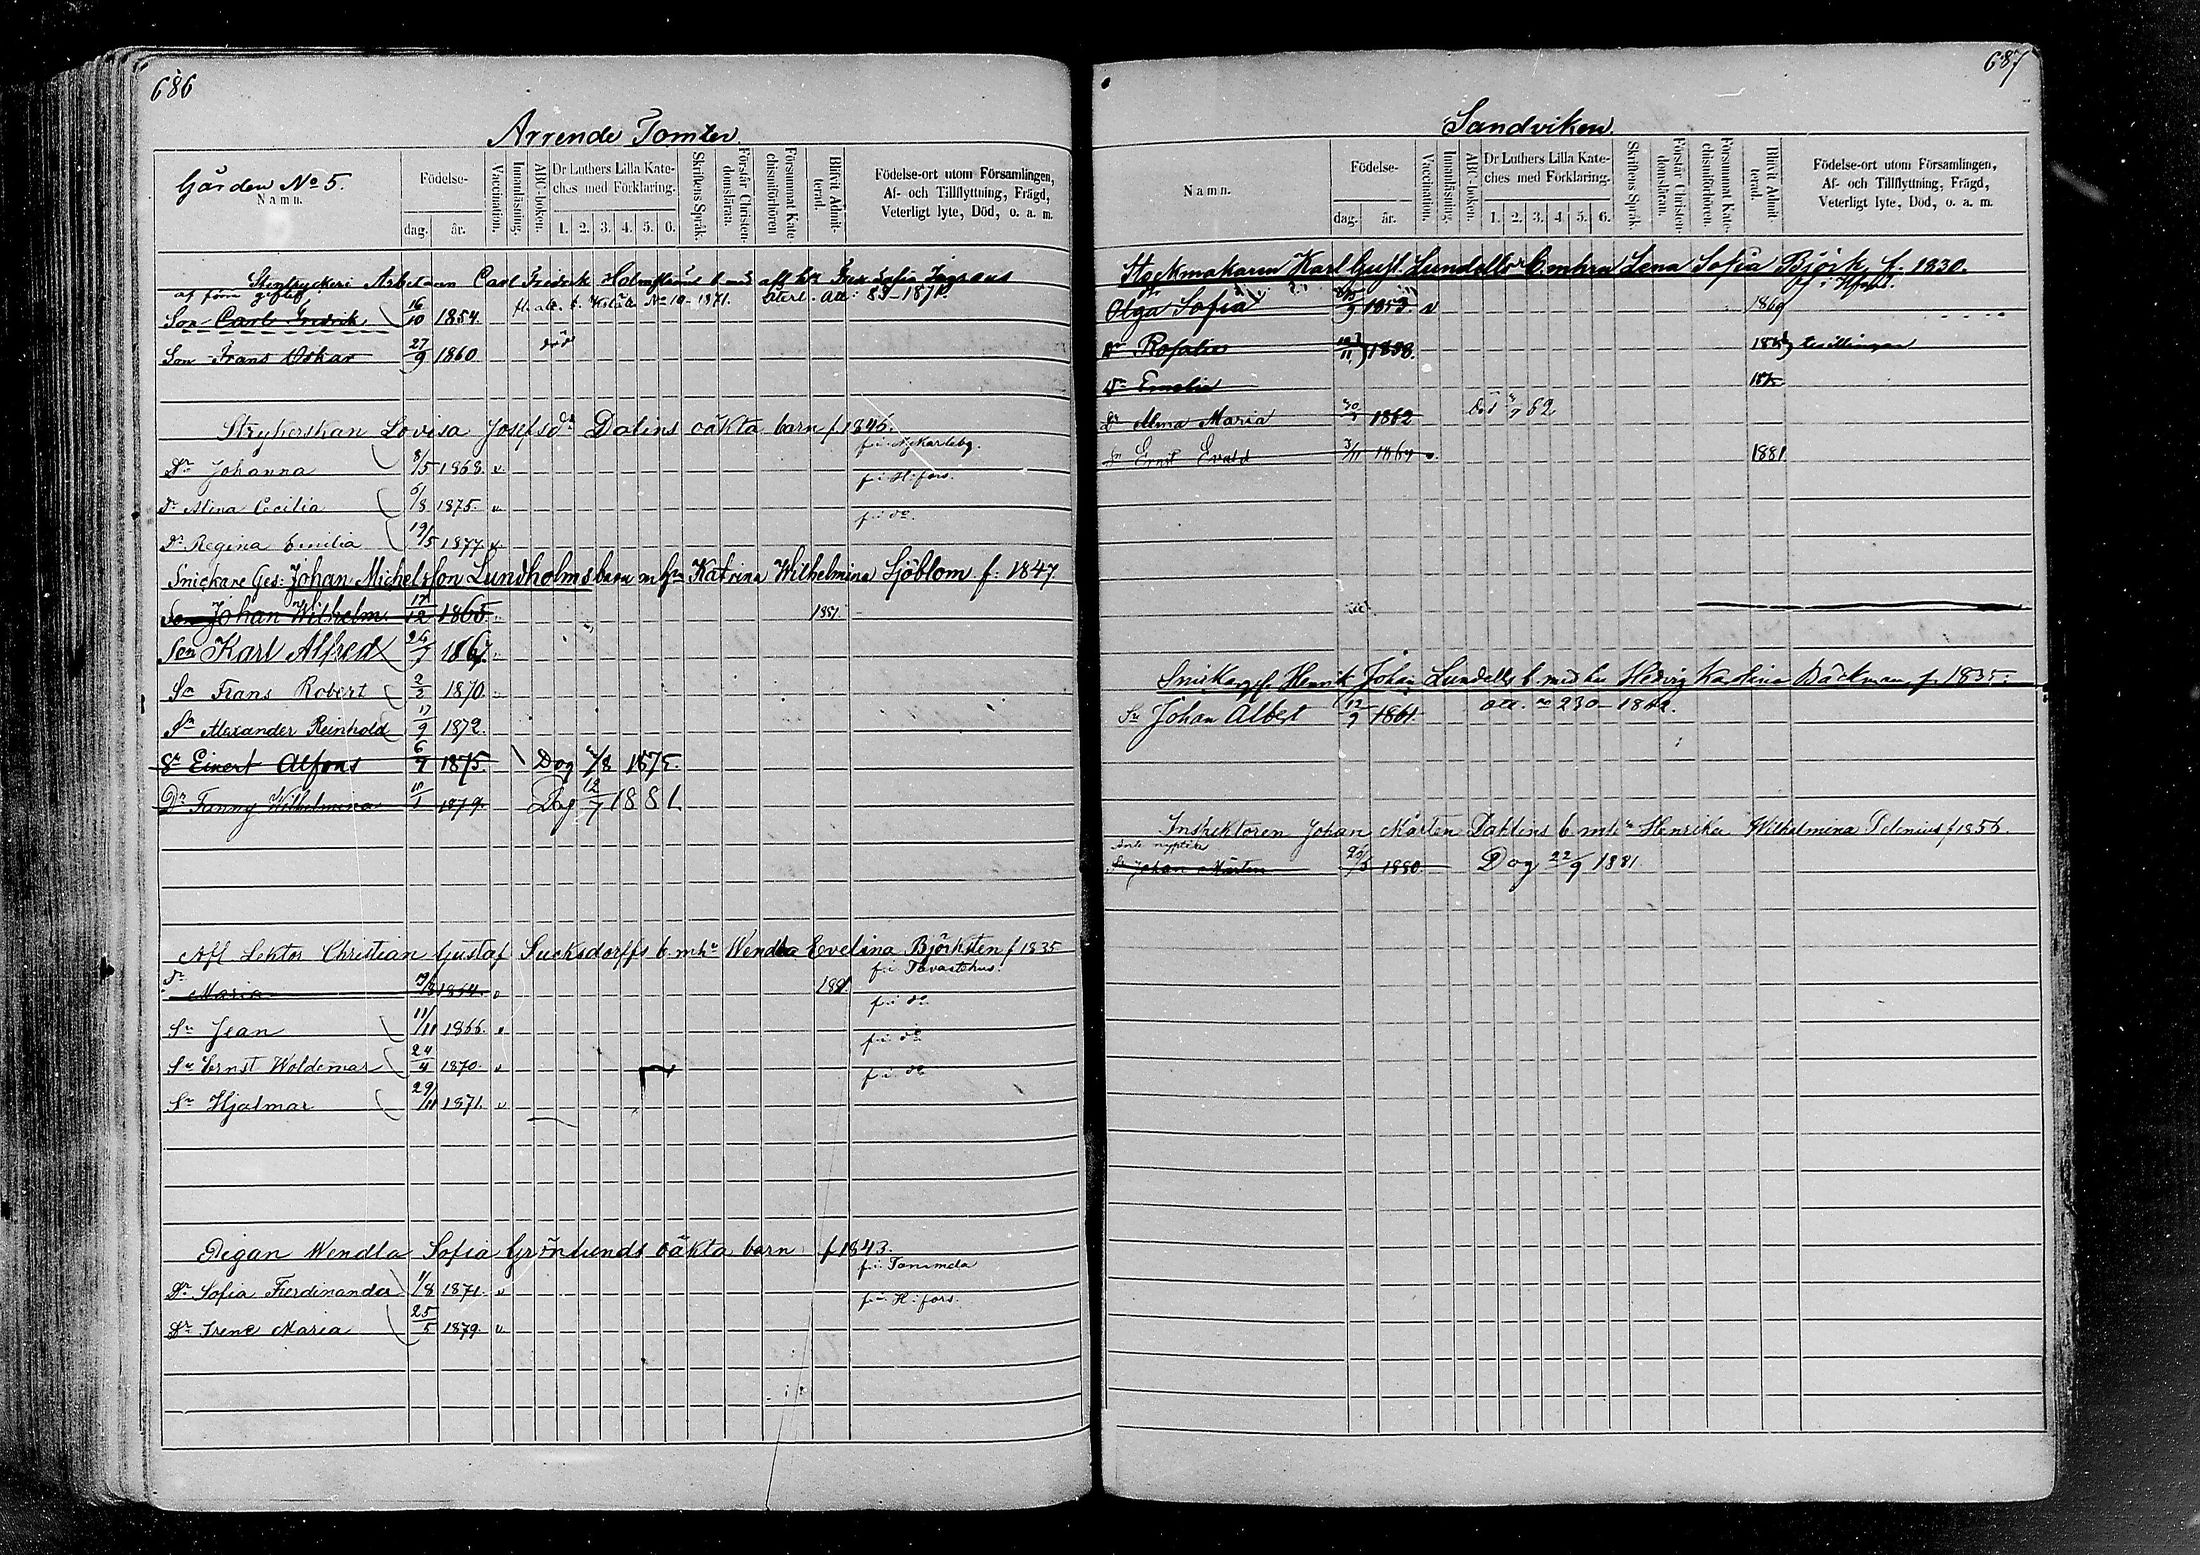 686
Arrende Tomter.
Gården No 5.
Namn.
Födelse-
dag.
år.
Vaccination.
Innanläsning.
ABC-boken.
Dr Luthers Lilla Kate-
ches med Förklaring.
1. 2. 3. 4. 5. 6.
Skriftens Språk.
Förstår Christen-
domsläran.
Försummat Kate-
chismiförhören
Blifvit Admit-
terad.
Födelse-ort utom Församlingen,
Af- och Tillflyttning, Frägd,
Veterligt lyte, Död, o. a. m.
Stentryckeri Arbetaren Carl Fredrik
af förra giftet
Son Carl Fredrik 16/10 1854. No 10 - 1871. 83-1871.
Son Frans Oskar 27/9 1860 död
Strykerskan Lovisa Josefsdr Dalins oäkta barn f 1846.
f. i. Nykarleby.
Dr Johanna 8/5 1868. v
f. i. H:fors.
Dr Alina Cecilia 6/8 1875. v
f. i. do.
Dr Regina Emilia 19/5 1877. v
Snickare Ges: Johan Michelsson Lundholms barn m hu Katrina Wilhelmina Sjöblom f. 1847.
Son Johan Wilhelm 17/12 1865 1881.
Son Karl Alfred 26/7 1867.
Sn Frans Robert 2/2 1870.
Sn Alexander Reinhold 17/9 1872.
Sn Einert Alfons 6/7 1875. Dog /8 1875.
Dr Fanny Wilhelmina 10/1 1879. Dog 12/7 1881.
Afl Lektor Christian Gustaf Sucksdorffs b. m hu Wendla Evelina Björksten f 1835
f. i. Tavastehus.
Dr Maria /8 1864. v 1881.
f. i. do.
Sn Jean 11/11 1866. v
f. i. do.
Sn Ernst Woldemar 24/4 1870. v
f. i. do.
Sn Hjalmar 29/11 1871. v
Pigan Wendla Sofia Grönlunds oäkta barn f 1843.
f. i.
Dr Sofia Ferdinanda 1/8 1871. v
f. i. H:fors.
Dr Irene Maria 25/5 1879. v
687
Sandviken.
Namn.
Födelse-
dag.
år.
Vaccination.
Innanläsning.
ABC-boken.
Dr Luthers Lilla Kate-
ches med Förklaring.
1. 2. 3. 4. 5. 6.
Skriftens Språk.
Förstår Christen-
domsläran.
Försummat Kate-
chismiförhören.
Blifvit Admit-
terad.
Födelse-ort utom Församlingen,
Af- och Tillflyttning, Frägd,
Veterligt lyte, Död, o. a. m.
Stockmakaren Karl Gust. Lundells b. m hu Lena Sofia Björk f. 1830.
Olga Sofia /9 1853. v 1869
Dr Rosalie /11 1858. tvillingar
Dr Emelia
Dr Alma Maria 30/ 1862 Död /7 62
Sn Emil Evald 3/11 1864 v 1881
Snickarges. Henrik Johan Lundells b. med hu Hedvig Karolina Bäckman f. 1835.
Sn Johan Albert 12/9 1861. att. no 230 - 1862.
Inspektoren Johan Mårten Dahlins b m hu Henrika Wilhelmina Telenius f 1856.
Sn Johan Mårten 1880. Dog 22/9 1881